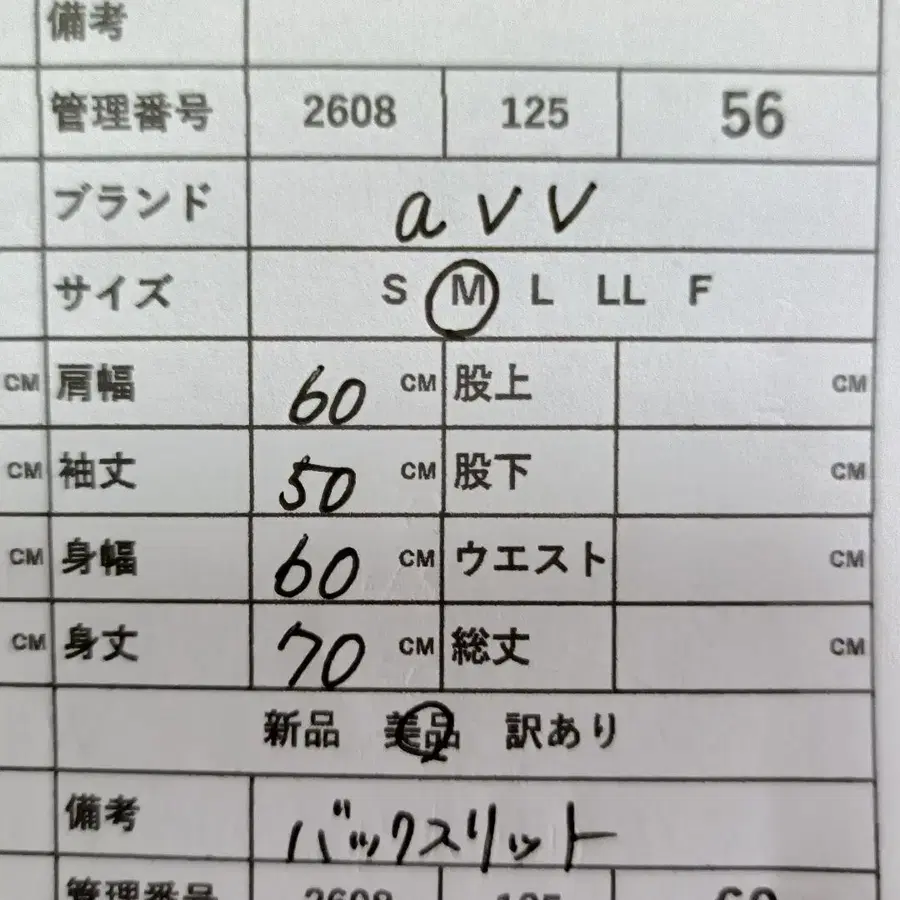 備考
管理番号 2608 125 56
ブランド avv
サイズ S M L LL F
CM 肩幅 60 CM 股上 CM
CM 袖丈 50 CM 股下 CM
CM 身幅 60 CM ウエスト CM
CM 身丈 70 CM 総丈 CM
新品 美品 訳あり
備考 バックスリット
管理番号 2608 125